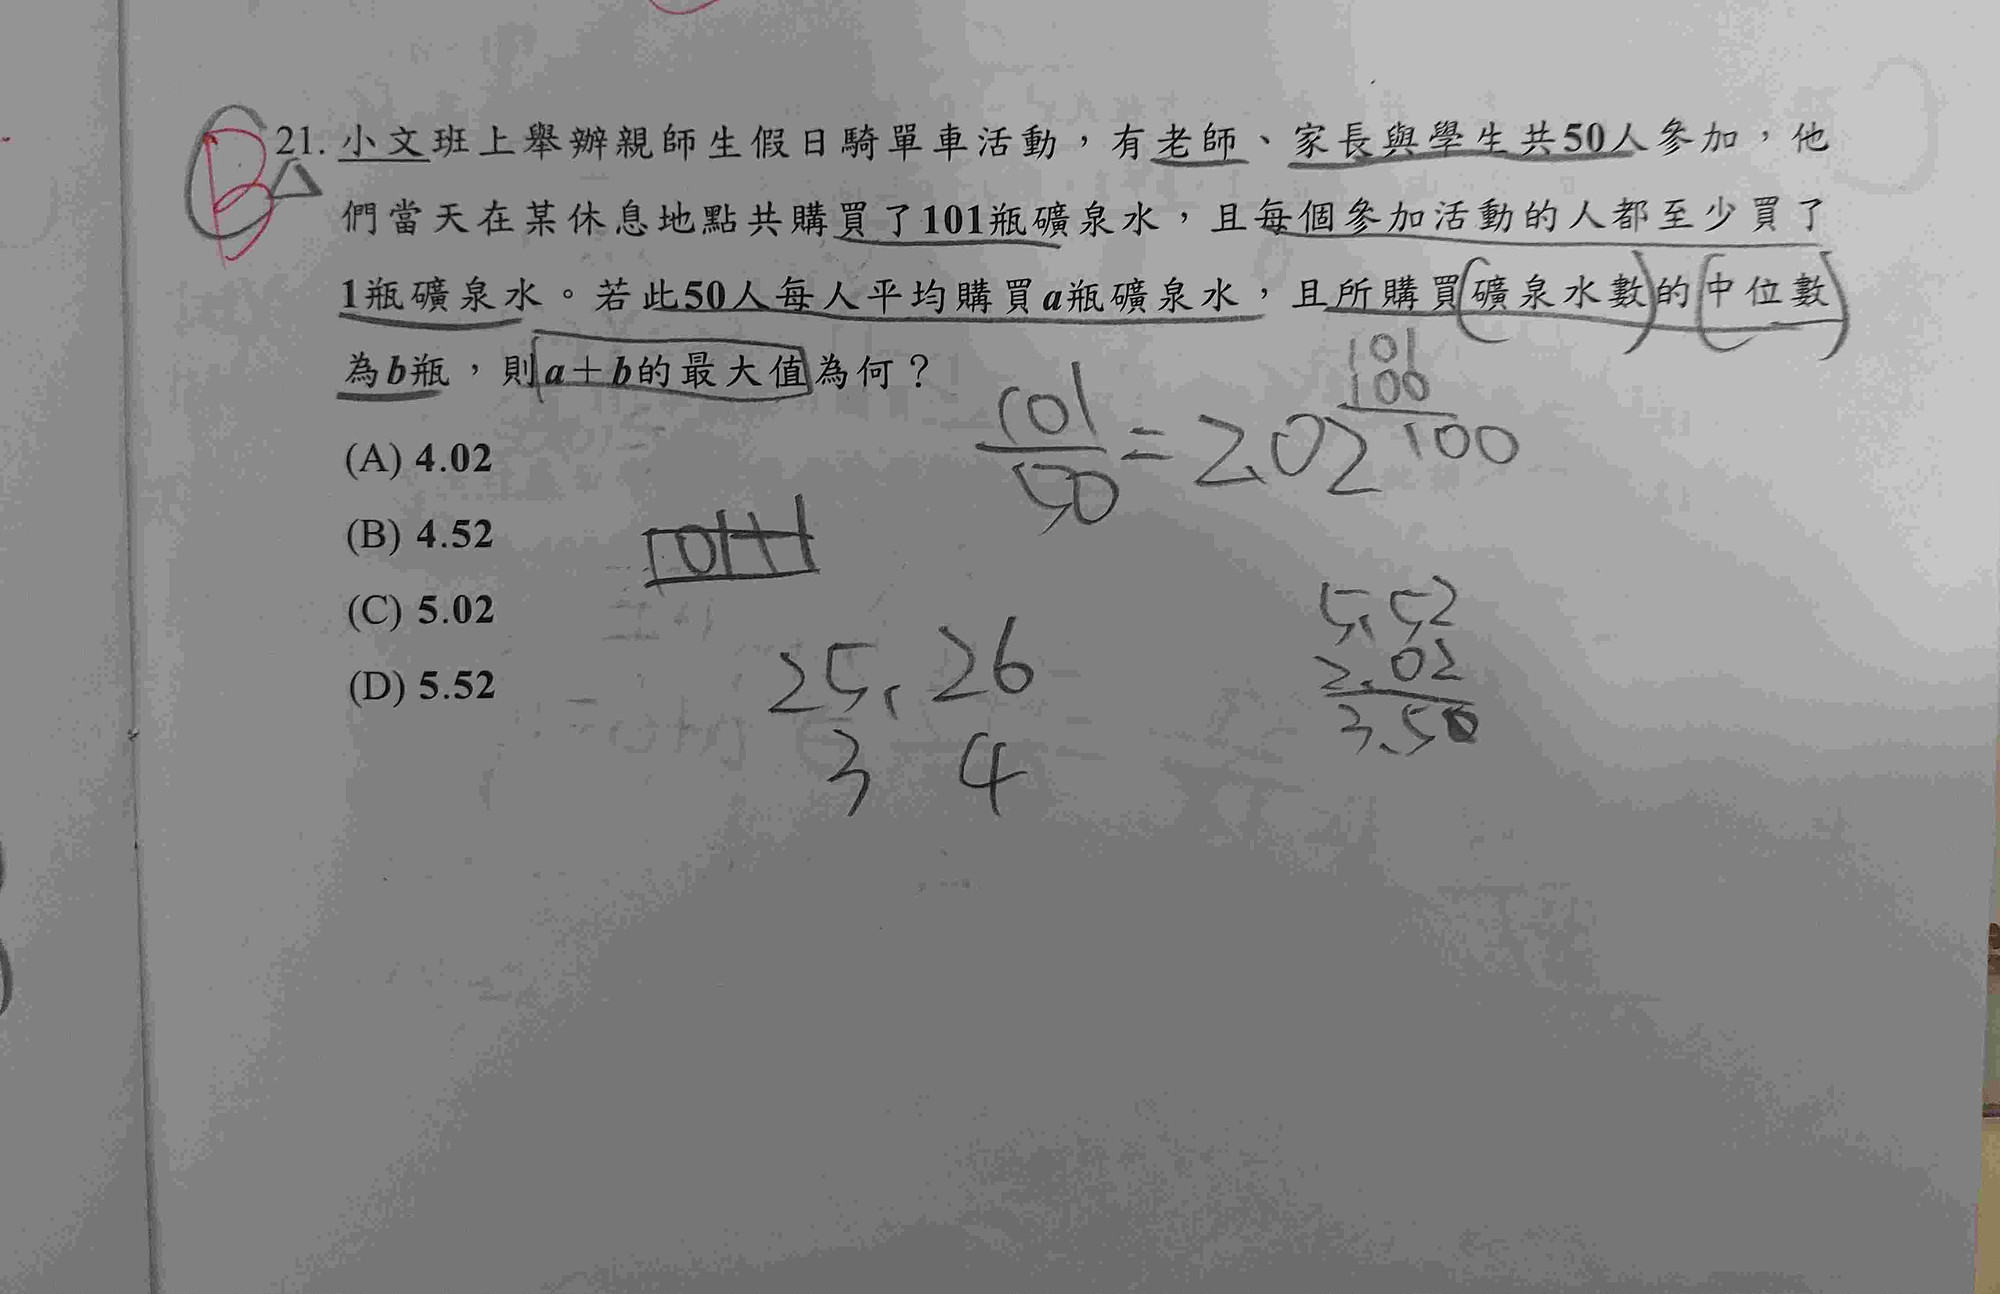 B
21. 小文班上舉辦親師生假日騎單車活動，有老師、家長與學生共50人參加，他
們當天在某休息地點共購買了101瓶礦泉水，且每個參加活動的人都至少買了
1瓶礦泉水。若此50人每人平均購買a瓶礦泉水，且所購買礦泉水數的中位數
為b瓶，則a＋b的最大值為何？
(A) 4.02
(B) 4.52
(C) 5.02
(D) 5.52
101/50=2.02
101
100
100
25, 26
3 4
5.52
2.02
3.50